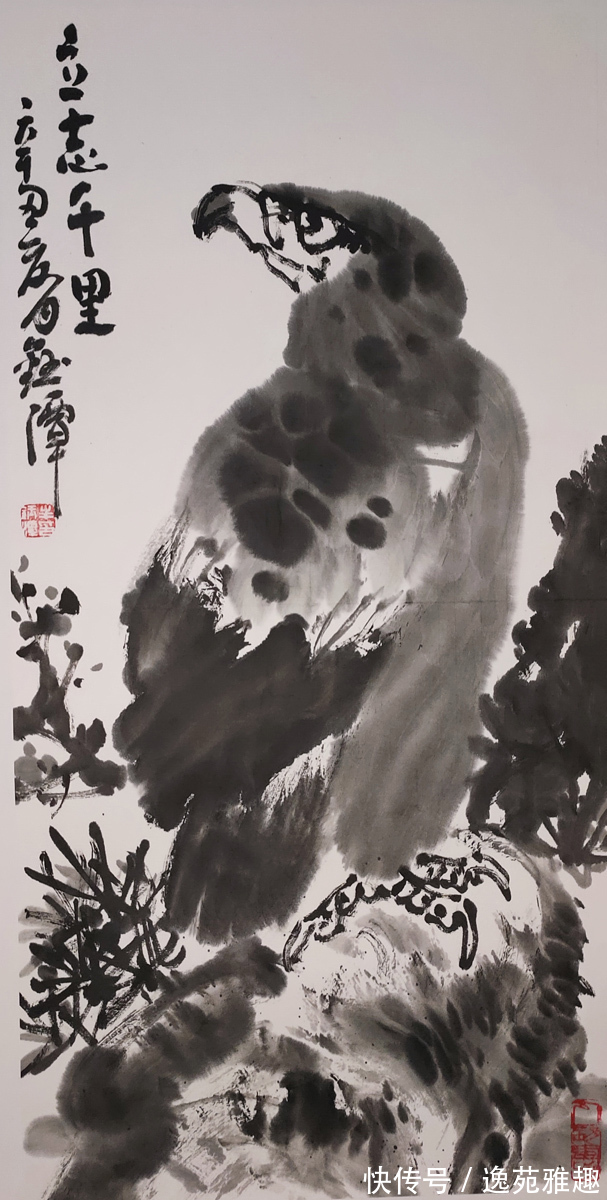 立志千里
辛丑夏月钰潭
快传号 / 逸苑雅趣